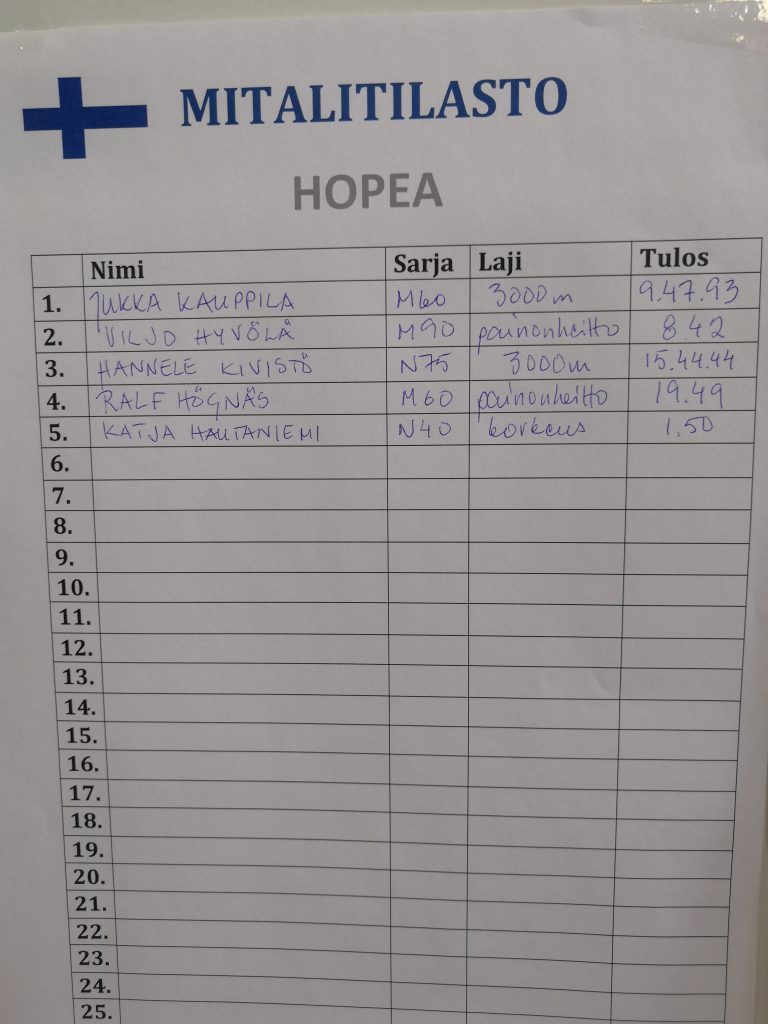 MITALITILASTO
HOPEA
Nimi Sarja Laji Tulos
1. JUKKA KAUPPILA M60 3000m 9.47.93
2. VILJO HYVÖLÄ M90 painonheitto 8.42
3. HANNELE KIVISTÖ N75 3000m 15.44.44
4. RALF HÖGNÄS M60 painonheitto 19.49
5. KATJA HAUTANIEMI N40 korkeus 1.50
6.
7.
8.
9.
10.
11.
12.
13.
14.
15.
16.
17.
18.
19.
20.
21.
22.
23.
24.
25.